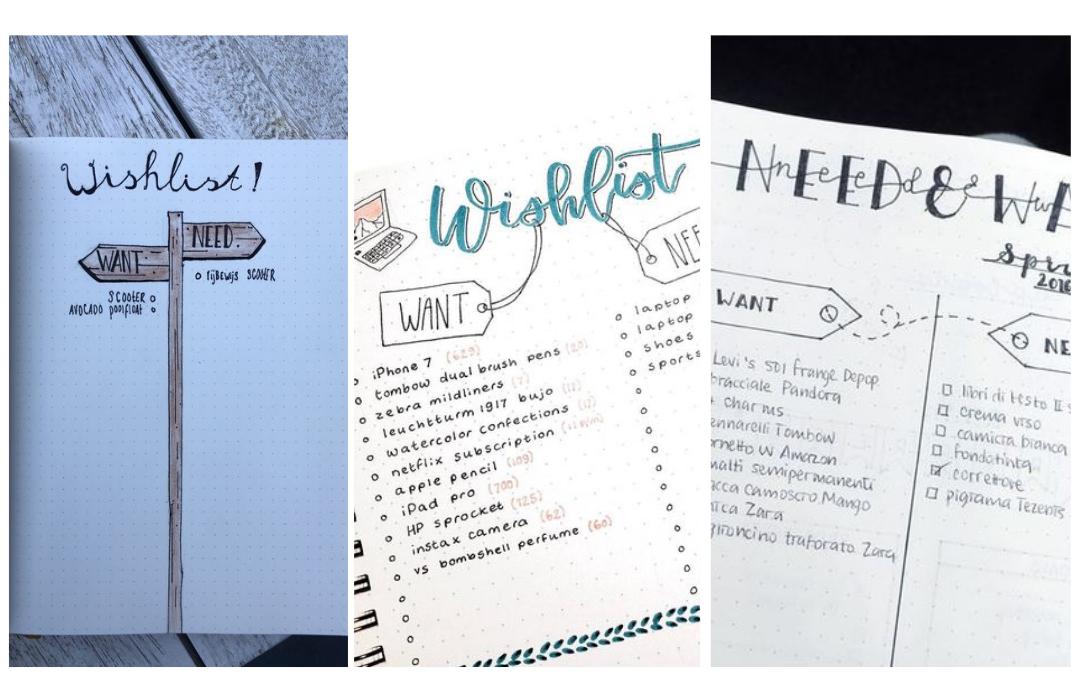 Wishlist!
NEED
WANT
rijbewijs SCOOTER
SCOOTER
AVOCADO poolfloat
Wishlist
NEE
WANT
iPhone 7 (629)
tombow dual brush pens (20)
zebra mildliners (7)
leuchtturm 1917 bujo (17)
watercolor confections (17)
netflix subscription
apple pencil (109)
iPad pro (700)
HP sprocket (125)
instax camera (62)
vs bombshell perfume (60)
laptop
laptop
shoes
sports
NnEeEeDd & WwA
spri
2018
WANT
NE
Levi's 501 frange Depop
bracciale Pandora
+ charms
ennarelli Tombow
ornetto W Amazon
malti semipermanenti
acca camoscio Mango
Zara
gironcino traforato Zara
libri di testo II s
crema viso
camicia bianca
fondotinta
correttore
pigiama Tezenis